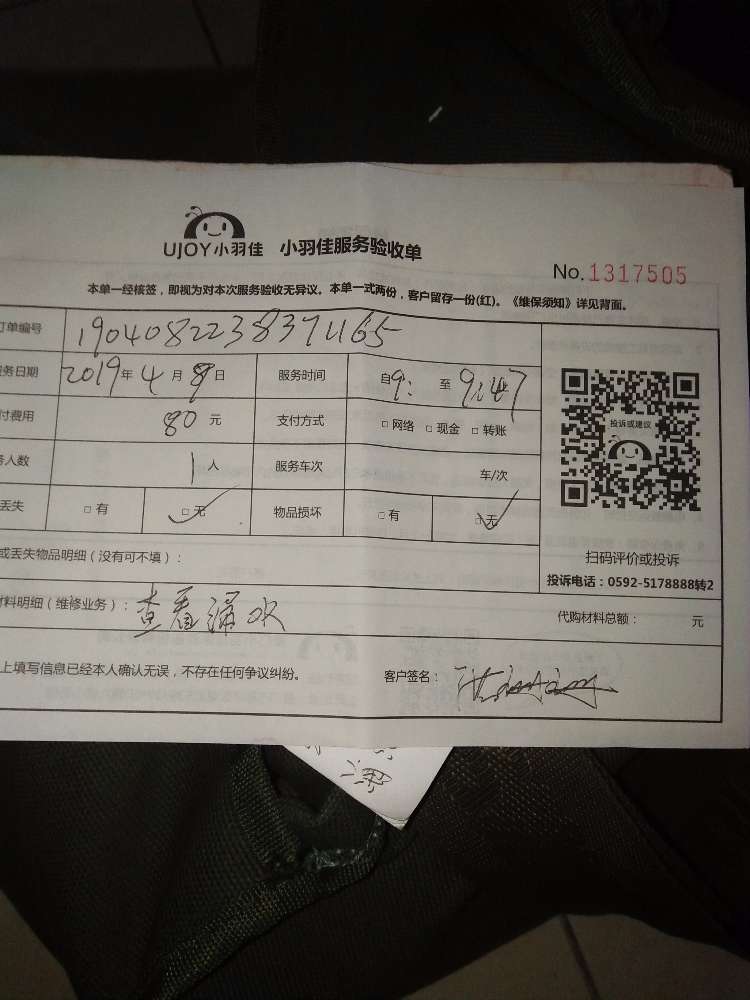 UJOY小羽佳 小羽佳服务验收单
No.1317505
本单一经核签，即视为对本次服务验收无异议。本单一式两份，客户留存一份(红)。《维保须知》详见背面。
订单编号 1904082238371165
服务日期 2019年4月9日 服务时间 自9: 至9:47
付费用 80元 支付方式 □网络 □现金 □转账
务人数 1人 服务车次 车/次
丢失 □有 □无 物品损坏 □有 □无
投诉或建议
扫码评价或投诉
投诉电话：0592-5178888转2
或丢失物品明细（没有可不填）：
材料明细（维修业务）：查看漏水 代购材料总额： 元
上填写信息已经本人确认无误，不存在任何争议纠纷。 客户签名：